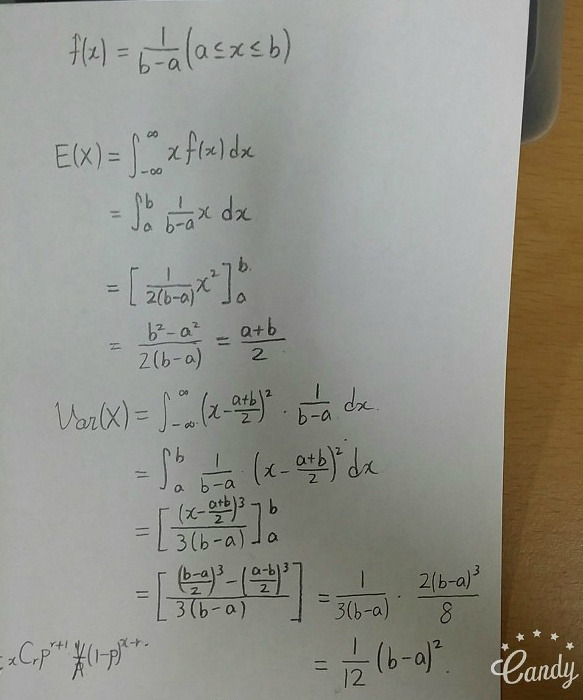 f(x) = 1/(b-a) (a ≤ x ≤ b)
E(X) = ∫_{-∞}^{∞} x f(x) dx
= ∫_a^b 1/(b-a) x dx
= [ 1/(2(b-a)) x² ]_a^b
= (b²-a²)/(2(b-a)) = (a+b)/2
Var(X) = ∫_{-∞}^{∞} (x - (a+b)/2)² · 1/(b-a) dx.
= ∫_a^b 1/(b-a) · (x - (a+b)/2)² dx
= [ (x - (a+b)/2)³ / (3(b-a)) ]_a^b
= [ (((b-a)/2)³ - ((a-b)/2)³) / (3(b-a)) ] = 1/(3(b-a)) · 2(b-a)³/8
= 1/12 (b-a)².
xCr p^{r+1} (1-p)^{x-r}.
Candy